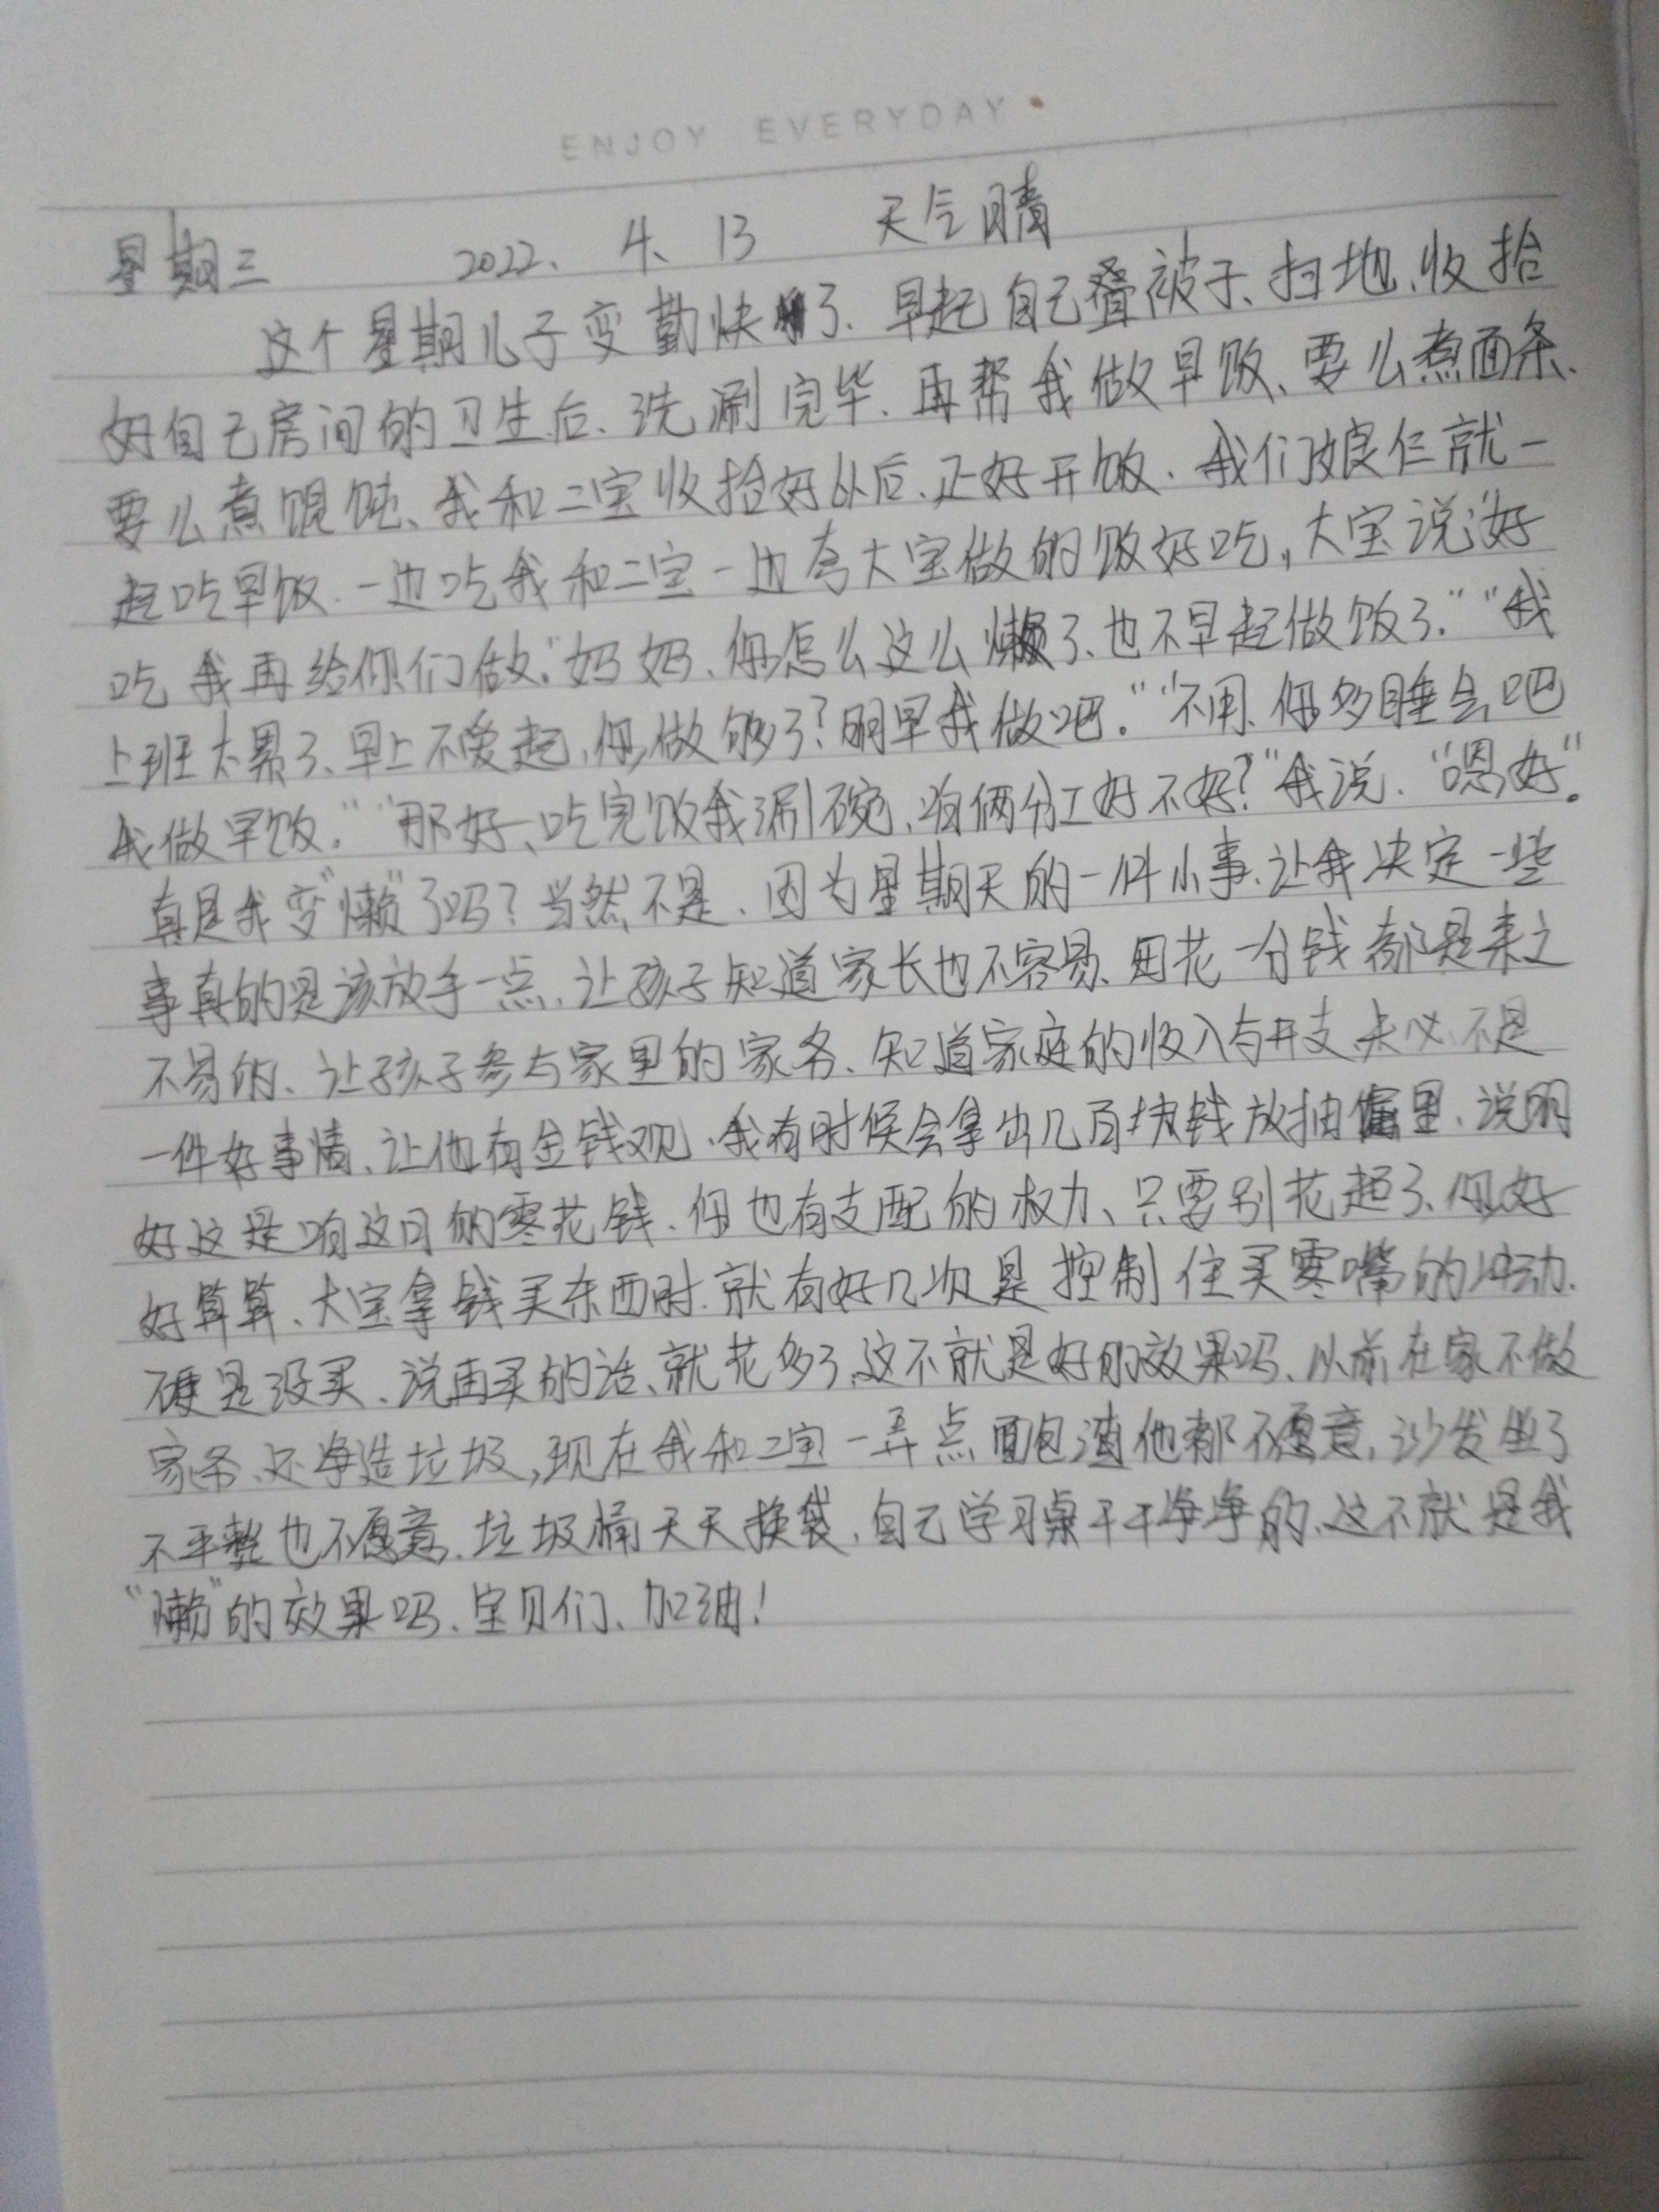 ENJOY EVERYDAY
星期三 2022、4、13 天气晴
这个星期儿子变勤快了、早起自己叠被子、扫地、收拾
好自己房间的卫生后、洗涮完毕、再帮我做早饭、要么煮面条、
要么煮馄饨、我和二宝收拾好以后、正好开饭、我们娘仨就一
起吃早饭、一边吃我和二宝一边夸大宝做的饭好吃,大宝说:"好
吃我再给你们做。"妈妈、你怎么这么懒了、也不早起做饭了.""我
上班太累了、早上不爱起、你做够了?明早我做吧.""不用、你多睡会吧
我做早饭.""那好、吃完饭我涮碗、咱俩分工好不好?"我说、"嗯,好"。
真是我变"懒"了吗?当然不是、因为星期天的一件小事、让我决定一些
事真的是该放手一点、让孩子知道家长也不容易、花一分钱都是来之
不易的、让孩子参与家里的家务、知道家庭的收入与开支未必不是
一件好事情、让他有金钱观、我有时候会拿出几百块钱放抽屉里、说明
好这是咱这月的零花钱、你也有支配的权力、只要别花超了、你好
好算算、大宝拿钱买东西时、就有好几次是控制住买零嘴的冲动、
硬是没买、说再买的话、就花多了、这不就是好的效果吗、以前在家不做
家务、还净造垃圾,现在我和二宝一弄点面包渣他都不愿意、沙发坐了
不平整也不愿意、垃圾桶天天换袋、自己学习桌干干净净的、这不就是我
"懒"的效果吗、宝贝们、加油!